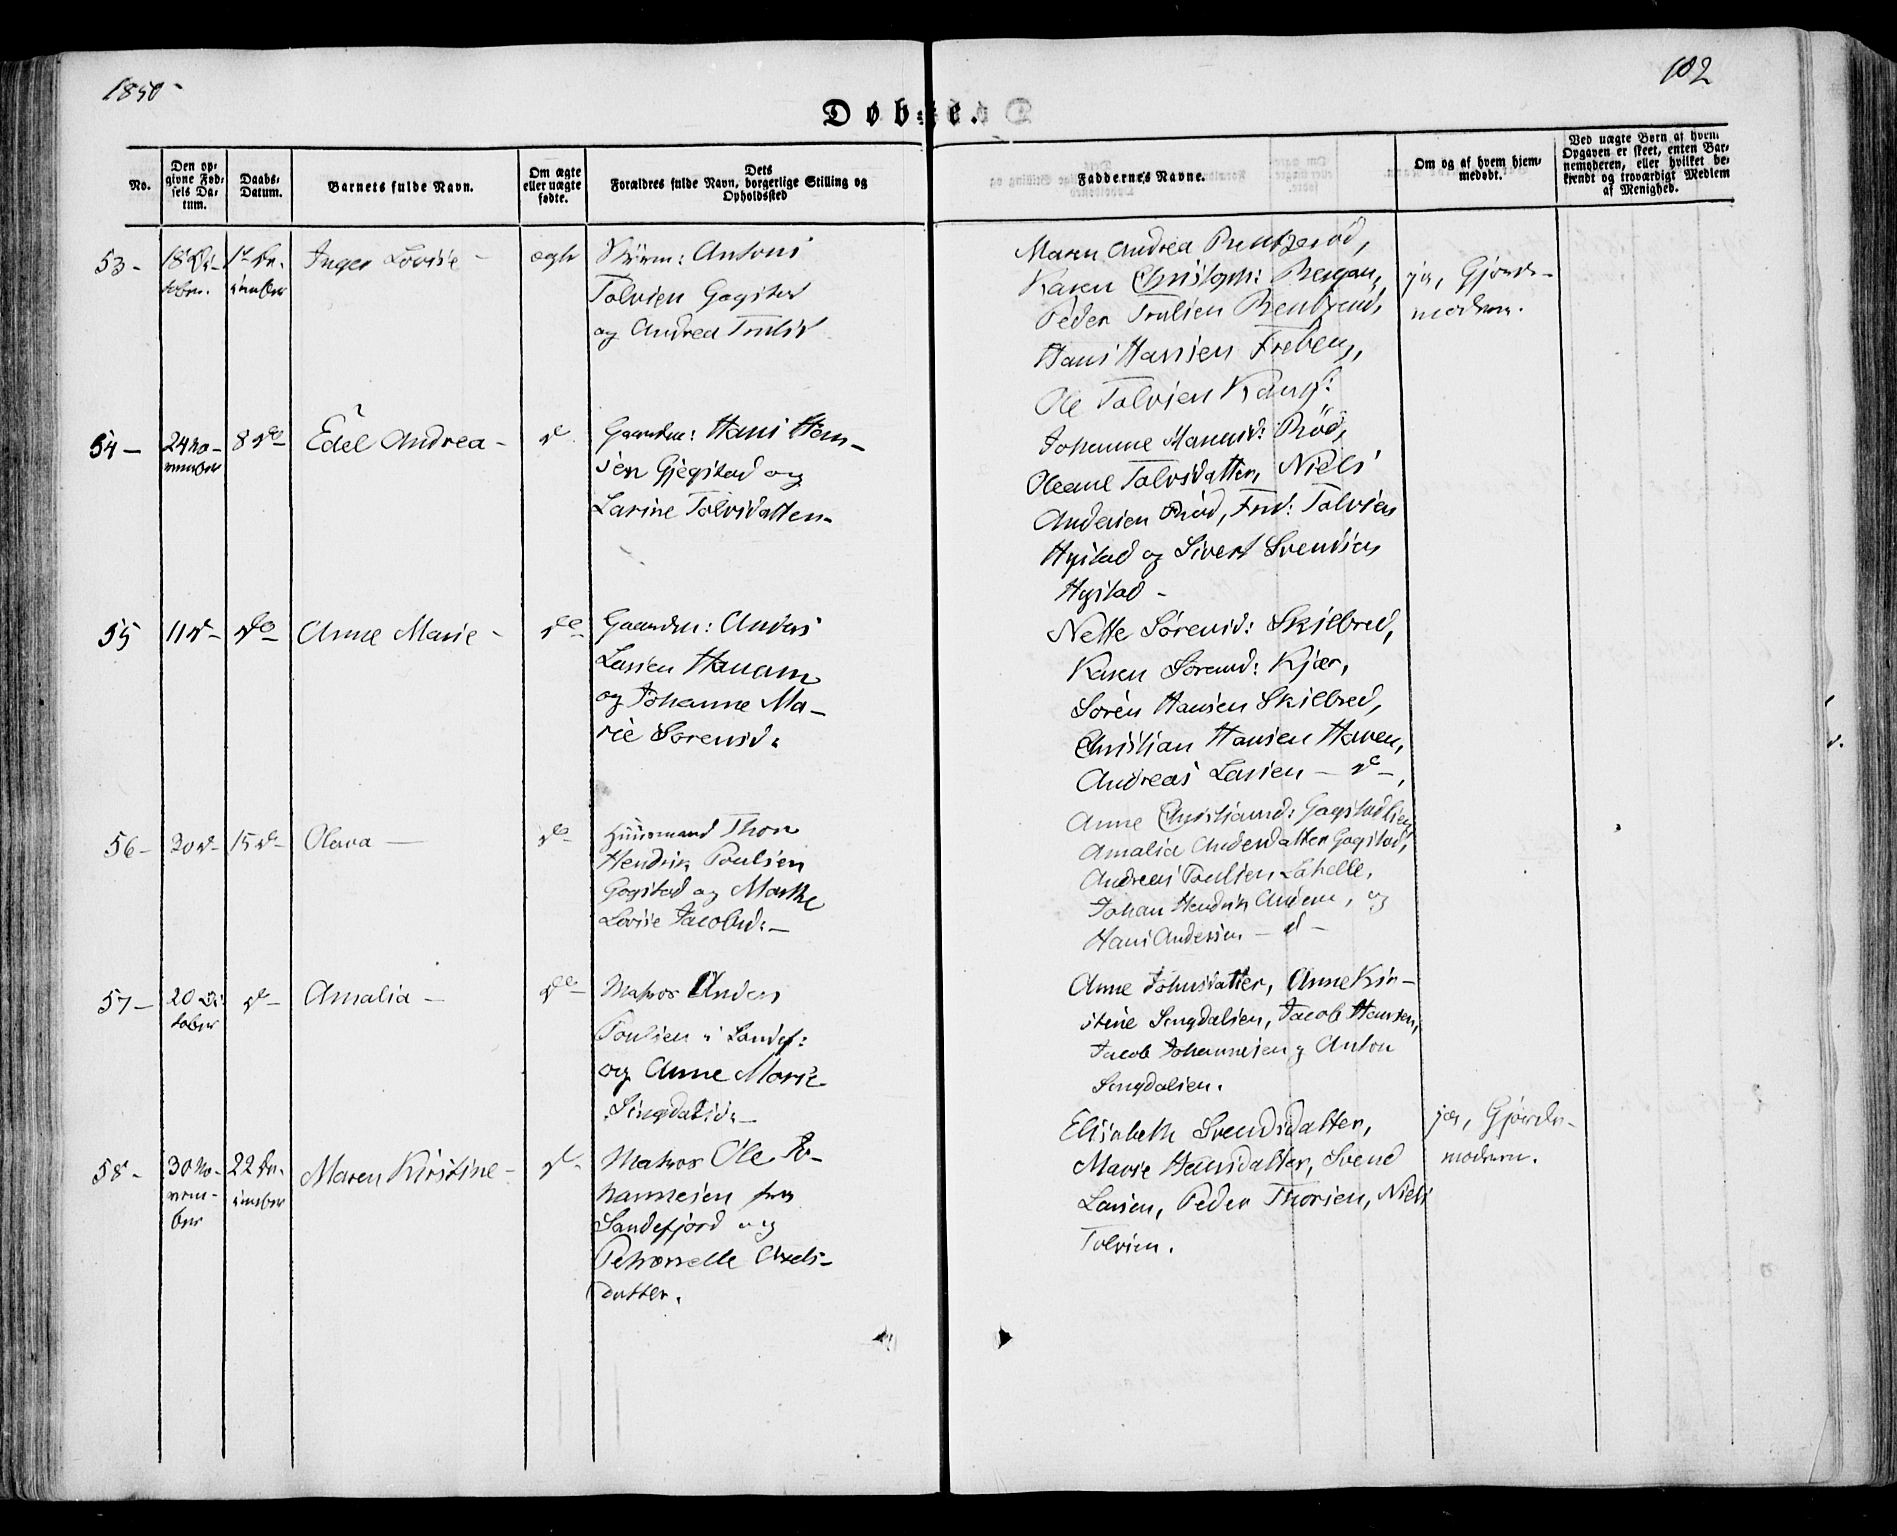 1850
102
Døbte.
No.
Den opgivne Fødsels Datum.
Daabs-Datum.
Barnets fulde Navn.
Om ægte eller uægte fødte.
Dets Forældres fulde Navn, borgerlige Stilling og Opholdssted
Faddernes Navne.
Om og af hvem hjemmedøbt.
Ved uægte Børn af hvem Opgaven er skeet, enten Barnemoderen, eller hvilket bekjendt og troværdigt Medlem af Menighed.
53 -
18 Oc-
tober.
1ste De-
cember
Inger Lovise -
ægte
Antoni
Tolvsen Gogstad
og Andrea Trulsd
Maren Andrea
Karen Christoph: Bergan,
Peder Trulsen
Hans Hansen Freberg,
Ole Tolvsen
ja, Gjorde-
moderen.
54 -
24 No-
vember
8 do
Edel Andrea -
do
Gaardm: Hans Han-
sen Gjegstad og
Larine Tolvsdatter
Johanne Rød,
Oleane Tolvsdatter, Niels
Andersen Rød, Tolvsen
Hystad og Sivert Svendsen
Hystad -
55
11 do -
do -
Anne Marie -
do -
Gaardm: Anders
Larsen Hauan
og Johanne Ma-
rie Sørensd:
Nette Sørensd: Skilbred,
Karen Sørensd: Kjær,
Søren Hansen Skilbred,
Christian Hansen Hauen,
Andreas Larsen - do -,
56 -
20 do -
15 do -
Olava -
do -
Huusmand Thor
Hendrik Poulsen
Gogstad og Marthe
Lovise Jacobsd: -
Anne Christiansd: Gogstadlien
Amalia Andersdatter Gogstad,
Andreas Poulsen Lahelle,
Johan Hendrik Anders, og
Hans Andersen - do -
57 -
20 Oc-
tober
do -
Amalia -
do -
Matros Anders
Poulsen i Sandef:
og Anne Marie
Lingdalsd: -
Anne Johnsdatter, Anne Kir-
stine Lingdalsen, Jacob Hansen,
Jacob Johannesen og Anton
Lingdalsen.
58 -
30 No-
vem-
ber
22 De-
cember
Maren Kirstine -
do -
Matros Ole Jo-
hannesen fra
Sandefjord og
Petronelle Axels-
datter.
Elisabeth Svendsdatter,
Marie Hansdatter, Svend
Larsen, Peder Thorsen, Niels
Tolvsen.
ja, Gjorde-
moderen.